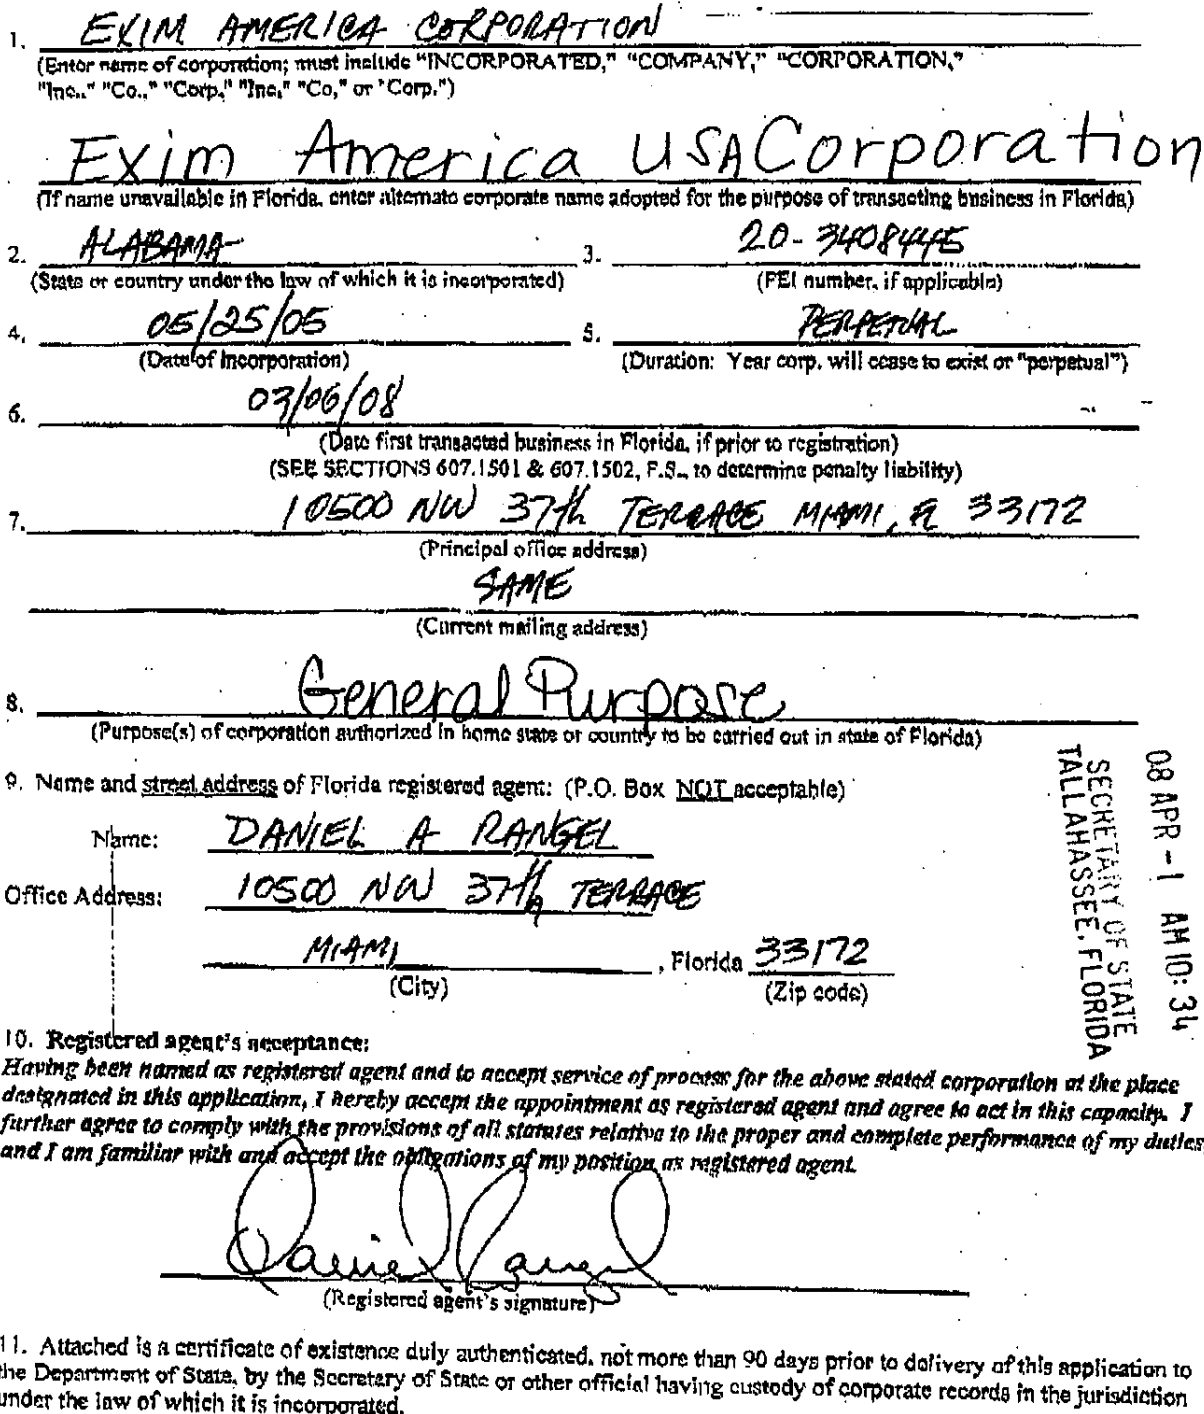 1. EXIM AMERICA CORPORATION
(Enter name of corporation; must include "INCORPORATED," "COMPANY," "CORPORATION,"
"Inc.," "Co.," "Corp," "Inc," "Co," or "Corp.")
Exim America USA Corporation
(If name unavailable in Florida, enter alternate corporate name adopted for the purpose of transacting business in Florida)
2. ALABAMA 3. 20-3408445
(State or country under the law of which it is incorporated) (FEI number, if applicable)
4. 05/25/05 5. PERPETUAL
(Date of incorporation) (Duration: Year corp. will cease to exist or "perpetual")
6. 03/06/08
(Date first transacted business in Florida, if prior to registration)
(SEE SECTIONS 607.1501 & 607.1502, F.S., to determine penalty liability)
7. 10500 NW 37th TERRACE MIAMI, FL 33172
(Principal office address)
SAME
(Current mailing address)
8. General Purpose
(Purpose(s) of corporation authorized in home state or country to be carried out in state of Florida)
9. Name and street address of Florida registered agent: (P.O. Box NOT acceptable)
Name: DANIEL A RANGEL
Office Address: 10500 NW 37th TERRACE
MIAMI, Florida 33172
(City) (Zip code)
08 APR -1 AM 10:34
SECRETARY OF STATE
TALLAHASSEE, FLORIDA
10. Registered agent's acceptance:
Having been named as registered agent and to accept service of process for the above stated corporation at the place
designated in this application, I hereby accept the appointment as registered agent and agree to act in this capacity. I
further agree to comply with the provisions of all statutes relative to the proper and complete performance of my duties
and I am familiar with and accept the obligations of my position as registered agent.
Daniel Rangel
(Registered agent's signature)
11. Attached is a certificate of existence duly authenticated, not more than 90 days prior to delivery of this application to
the Department of State, by the Secretary of State or other official having custody of corporate records in the jurisdiction
under the law of which it is incorporated.